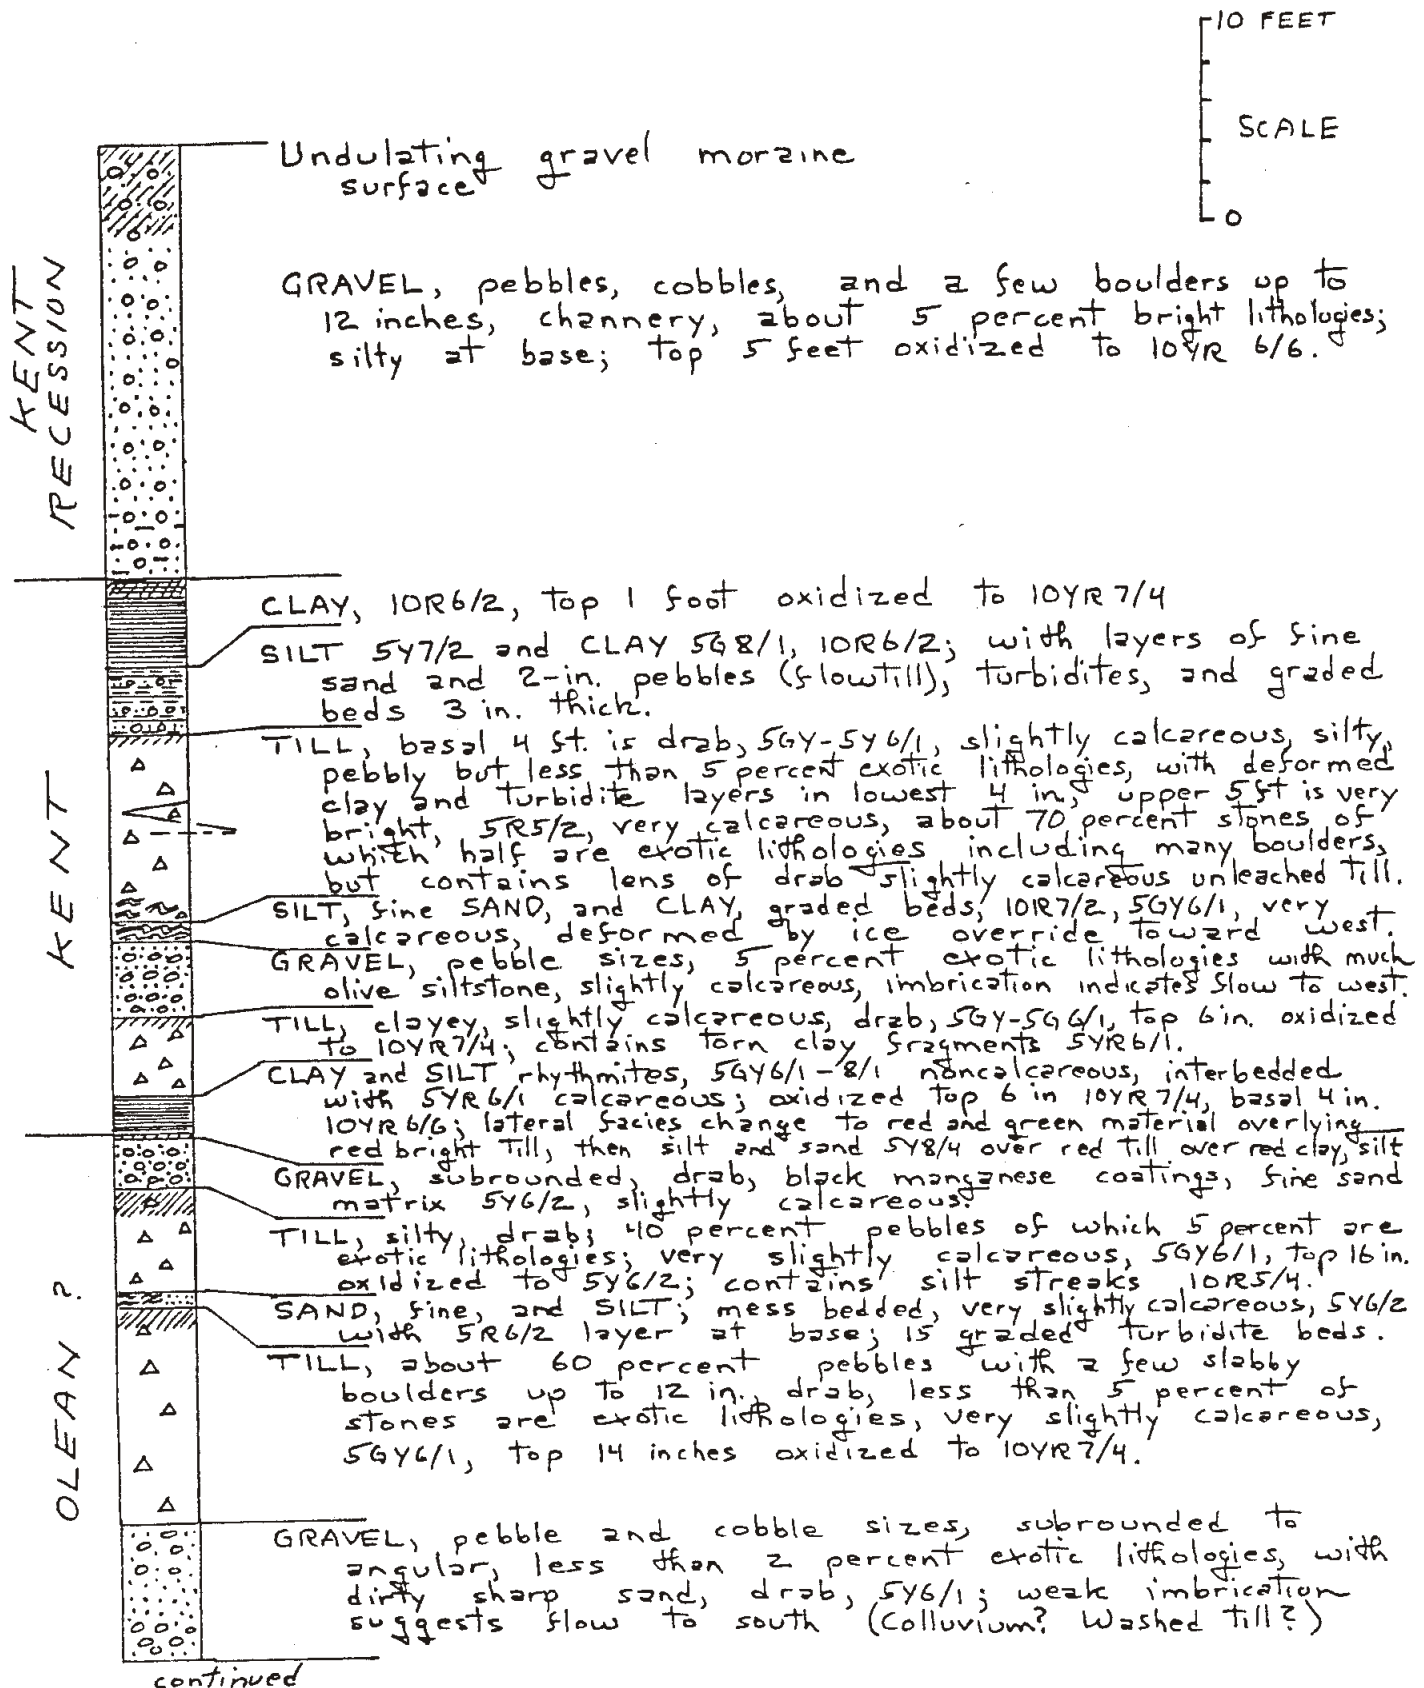 10 FEET
SCALE
0
Undulating gravel moraine
surface
KENT
RECESSION
GRAVEL, pebbles, cobbles, and a few boulders up to
12 inches, channery, about 5 percent bright lithologies;
silty at base; top 5 feet oxidized to 10YR 6/6.
KENT
CLAY, 10R6/2, top 1 foot oxidized to 10YR 7/4
SILT 5Y7/2 and CLAY 5G8/1, 10R6/2; with layers of fine
sand and 2-in. pebbles (flowtill), turbidites, and graded
beds 3 in. thick.
TILL, basal 4 ft. is drab, 5GY-5Y6/1, slightly calcareous, silty,
pebbly but less than 5 percent exotic lithologies, with deformed
clay and turbidite layers in lowest 4 in, upper 5 ft is very
bright, 5R5/2, very calcareous, about 70 percent stones of
which half are exotic lithologies including many boulders,
but contains lens of drab slightly calcareous unleached till.
SILT, fine SAND, and CLAY, graded beds, 10R7/2, 5GY6/1, very
calcareous, deformed by ice override toward west.
GRAVEL, pebble sizes, 5 percent exotic lithologies with much
olive siltstone, slightly calcareous, imbrication indicates flow to west.
TILL, clayey, slightly calcareous, drab, 5GY-5G6/1, top 6 in. oxidized
to 10YR7/4; contains torn clay fragments 5YR6/1.
CLAY and SILT rhythmites, 5GY6/1-8/1 noncalcareous, interbedded
with 5YR6/1 calcareous; oxidized top 6 in 10YR 7/4, basal 4 in.
10YR6/6; lateral facies change to red and green material overlying
red bright till, then silt and sand 5Y8/4 over red till over red clay, silt
OLEAN ?
GRAVEL, subrounded, drab, black manganese coatings, fine sand
matrix 5Y6/2, slightly calcareous.
TILL, silty, drab; 40 percent pebbles of which 5 percent are
exotic lithologies; very slightly calcareous, 5GY6/1, top 16 in.
oxidized to 5Y6/2; contains silt streaks 10R5/4.
SAND, fine, and SILT; mess bedded, very slightly calcareous, 5Y6/2
with 5R6/2 layer at base; 15 graded turbidite beds.
TILL, about 60 percent pebbles with a few slabby
boulders up to 12 in., drab, less than 5 percent of
stones are exotic lithologies, very slightly calcareous,
5GY6/1, top 14 inches oxidized to 10YR7/4.
GRAVEL, pebble and cobble sizes, subrounded to
angular, less than 2 percent exotic lithologies, with
dirty sharp sand, drab, 5Y6/1; weak imbrication
suggests flow to south (Colluvium? Washed till?)
continued